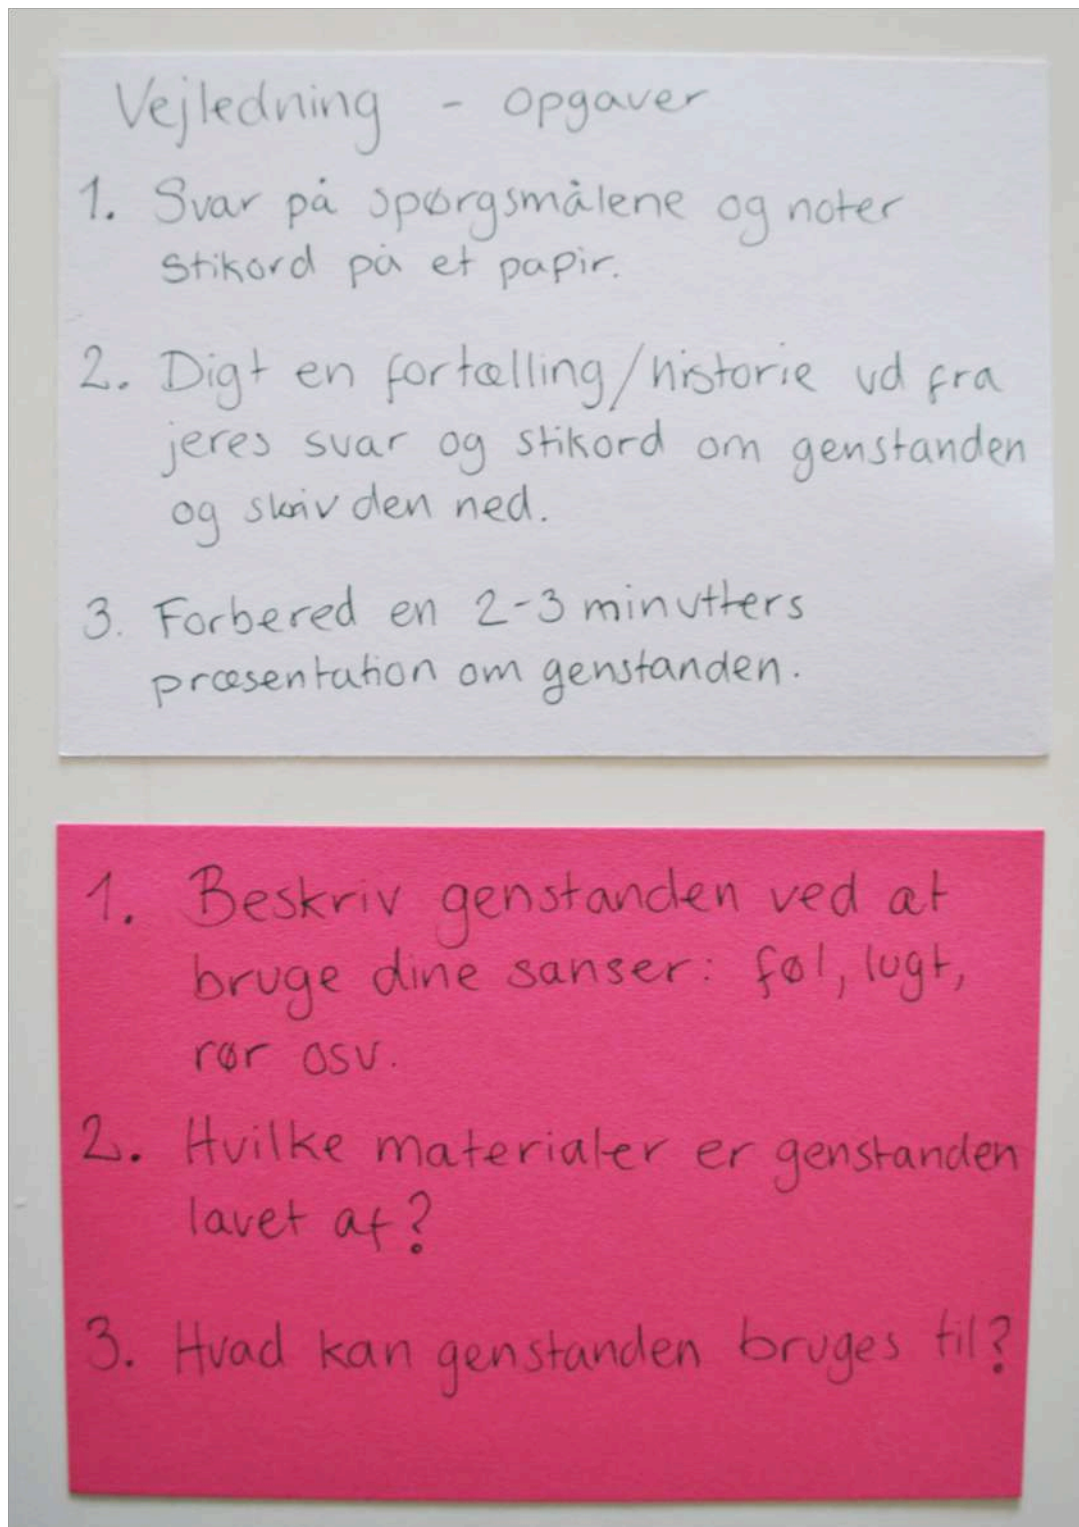 Vejledning - opgaver
1. Svar på spørgsmålene og noter
stikord på et papir.
2. Digt en fortælling/historie ud fra
jeres svar og stikord om genstanden
og skriv den ned.
3. Forbered en 2-3 minutters
præsentation om genstanden.
1. Beskriv genstanden ved at
bruge dine sanser: føl, lugt,
rør osv.
2. Hvilke materialer er genstanden
lavet af?
3. Hvad kan genstanden bruges til?